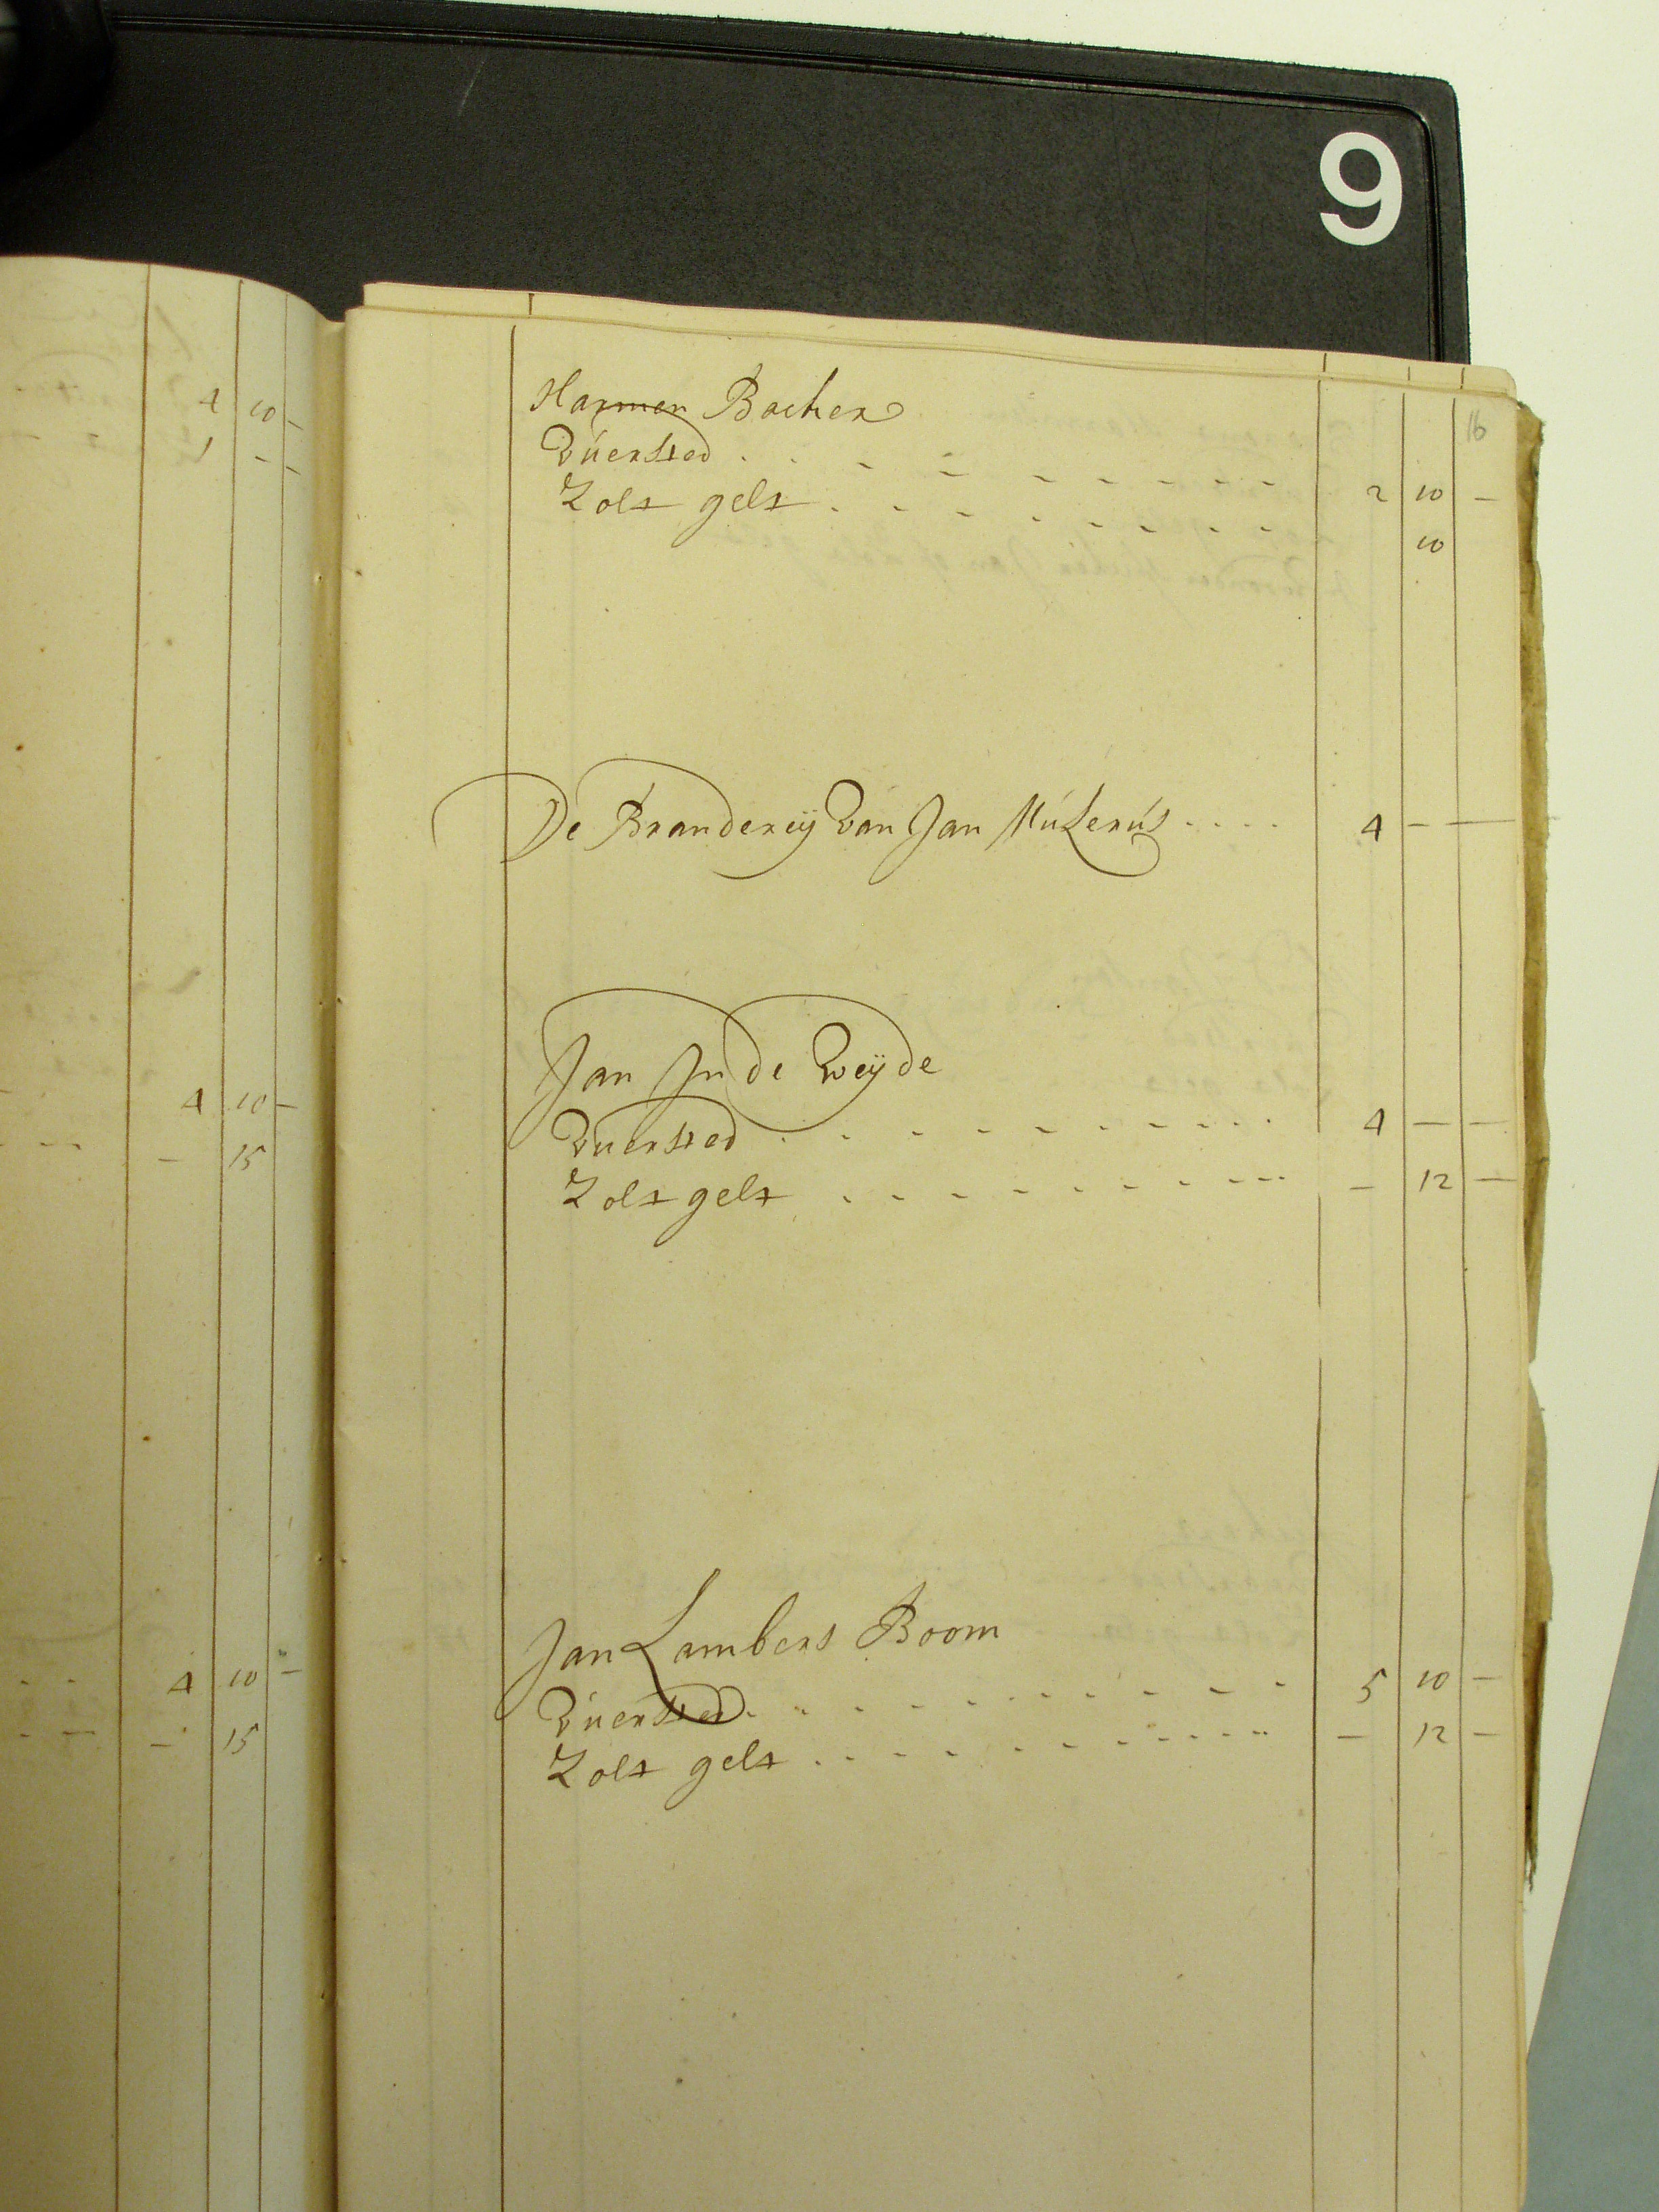 9
16
4 10 -
1 - -
4 10 -
- 15
4 10 -
- 15
Harmen Backer
Vuersted 2 10 -
Zolt gelt 10
De Brandereij Van Jan Mulerús 4 - -
Jan In de Weijde
Vuersted 4 - -
Zolt gelt - 12 -
Jan Lambers Boom
Vuersted 5 10 -
Zolt gelt - 12 -